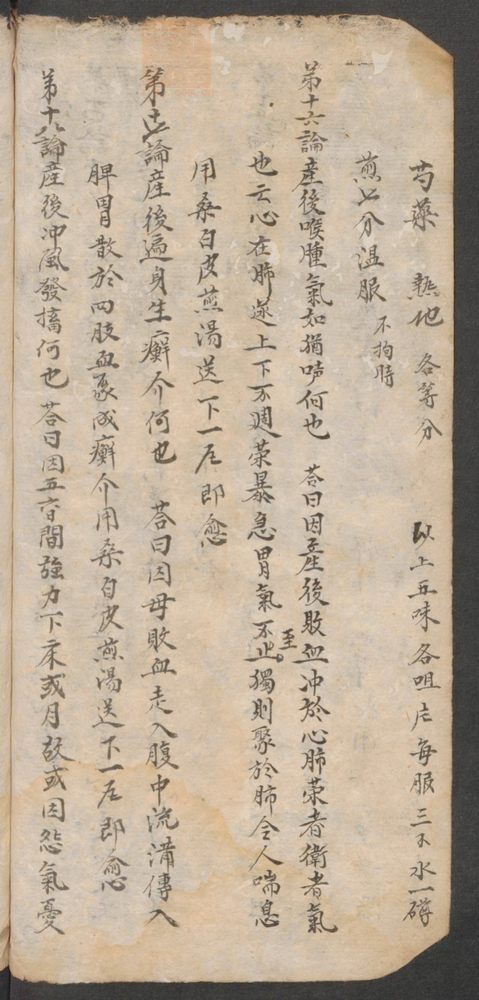 芍藥 熟地 各等分 以上五味各咀片每服三不水一礶
煎七分温服 不拘時
第十六論産後喉腫氣如猶吼何也 荅曰因産後敗血冲於心肺荣者衛者氣
也云心在肺遂上下不週荣暴急胃氣不止至獨則聚於肺令人喘息
用桑白皮煎湯送下一元即愈
第十七論産後遍身生癬介何也 荅曰因母敗血走入腹中流滿傳入
脾胃散於四肢血聚成癬介用桑白皮煎湯送下一元即愈
第十八論産後冲風發搐何也 荅曰因五音間强力下床或月故或因怨氣憂